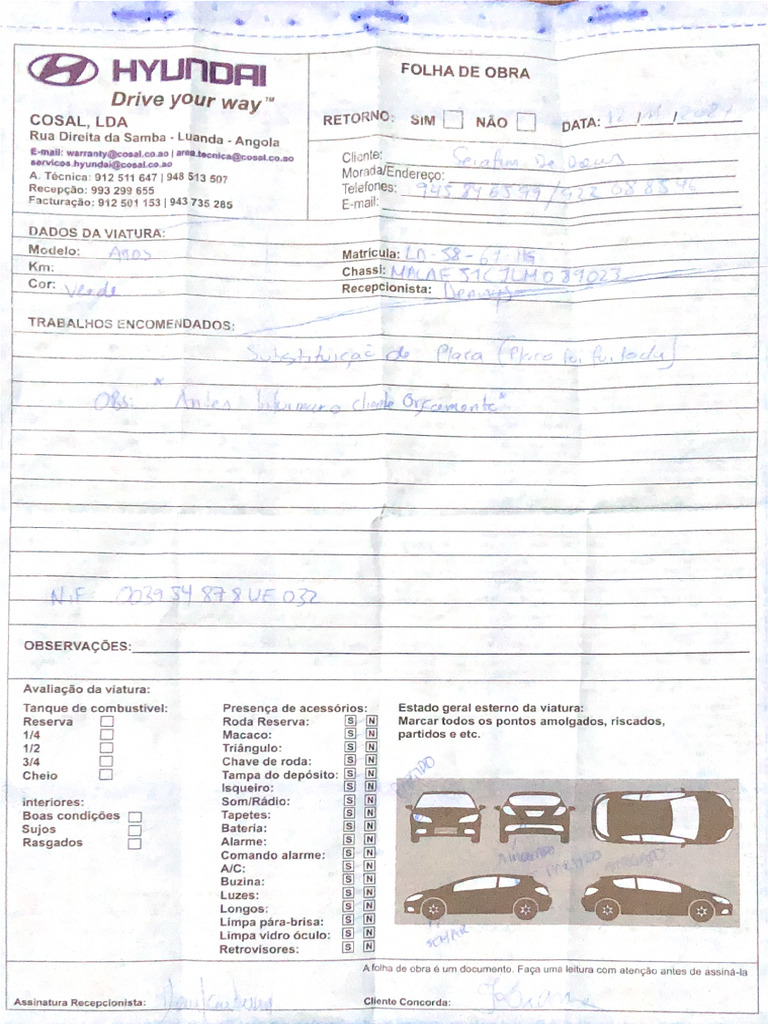 HYUNDAI
Drive your way™
COSAL, LDA
Rua Direita da Samba - Luanda - Angola
E-mail: warranty@cosal.co.ao | area.tecnica@cosal.co.ao
servicos.hyundai@cosal.co.ao
A. Técnica: 912 511 647 | 948 513 507
Recepção: 993 299 655
Facturação: 912 501 153 | 943 735 285
FOLHA DE OBRA
RETORNO: SIM NÃO DATA: 12 / 11 /
Cliente: Serafim De Deus
Morada/Endereço:
Telefones: 945 84 65 99 / 922 68 85 46
E-mail:
DADOS DA VIATURA:
Modelo: Atos
Km:
Cor: Verde
Matrícula: LD-58-61-HG
Chassi:
Recepcionista:
TRABALHOS ENCOMENDADOS:
Substituição de Placa (Placa foi furtada)
OBS: * Antes Informar o cliente Orçamento *
NIF: 003934878UE032
OBSERVAÇÕES:
Avaliação da viatura:
Tanque de combustível:
Reserva
1/4
1/2
3/4
Cheio
interiores:
Boas condições
Sujos
Rasgados
Presença de acessórios:
Roda Reserva: S N
Macaco: S N
Triângulo: S N
Chave de roda: S N
Tampa do depósito: S N
Isqueiro: S N
Som/Rádio: S N
Tapetes: S N
Bateria: S N
Alarme: S N
Comando alarme: S N
A/C: S N
Buzina: S N
Luzes: S N
Longos: S N
Limpa pára-brisa: S N
Limpa vidro óculo: S N
Retrovisores: S N
Estado geral esterno da viatura:
Marcar todos os pontos amolgados, riscados,
partidos e etc.
PARTIDO
A folha de obra é um documento. Faça uma leitura com atenção antes de assiná-la
Assinatura Recepcionista:
Cliente Concorda: